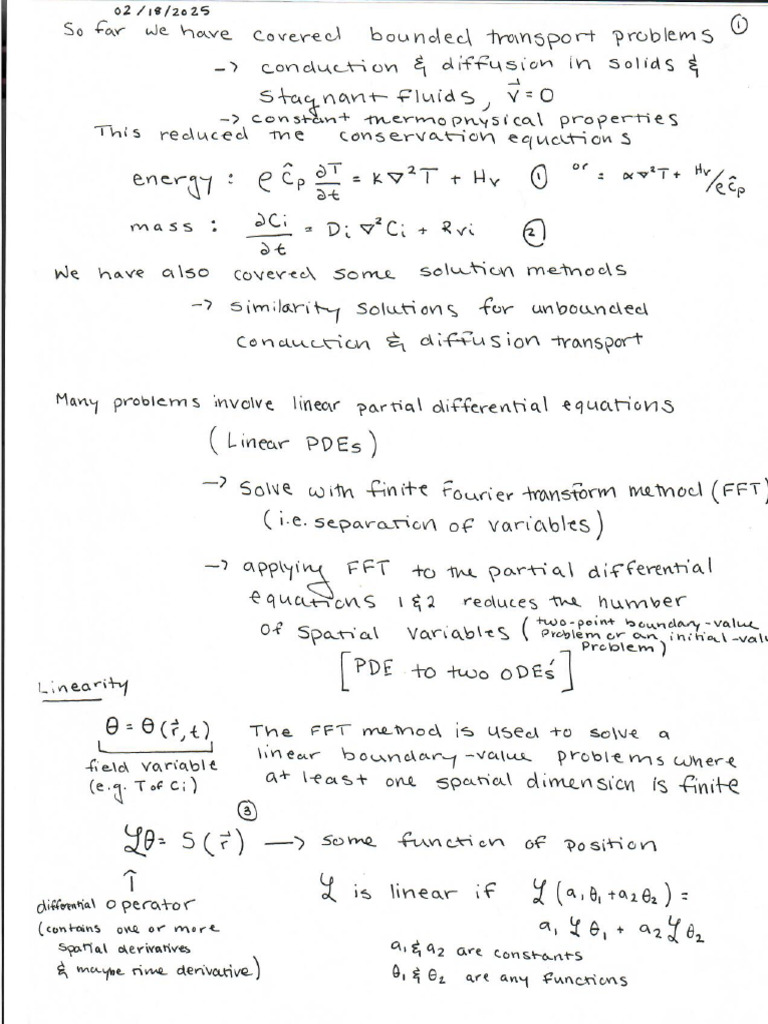 02/18/2025
①
So far we have covered bounded transport problems
-> conduction & diffusion in solids &
stagnant fluids, v⃗ = 0
-> constant thermophysical properties
This reduced the conservation equations
energy : ρ Ĉp ∂T/∂t = k∇²T + Hv ① or = α∇²T + Hv/ρĈp
mass : ∂Ci/∂t = Di ∇²Ci + Rvi ②
We have also covered some solution methods
-> similarity solutions for unbounded
conduction & diffusion transport
Many problems involve linear partial differential equations
(Linear PDEs)
-> solve with finite Fourier transform method (FFT)
(i.e. separation of variables)
-> applying FFT to the partial differential
equations 1 & 2 reduces the number
of spatial variables (two-point boundary-value
problem or an initial-valu
problem)
[PDE to two ODEs']
Linearity
θ = θ(r⃗, t)
field variable
(e.g. T of Ci)
The FFT method is used to solve a
linear boundary-value problems where
at least one spatial dimension is finite
③
ℒθ = S(r⃗) -> some function of position
↑
differential operator
(contains one or more
spatial derivatives
& maybe time derivative)
ℒ is linear if ℒ(a₁θ₁ + a₂θ₂) =
a₁ℒθ₁ + a₂ℒθ₂
a₁ & a₂ are constants
θ₁ & θ₂ are any functions